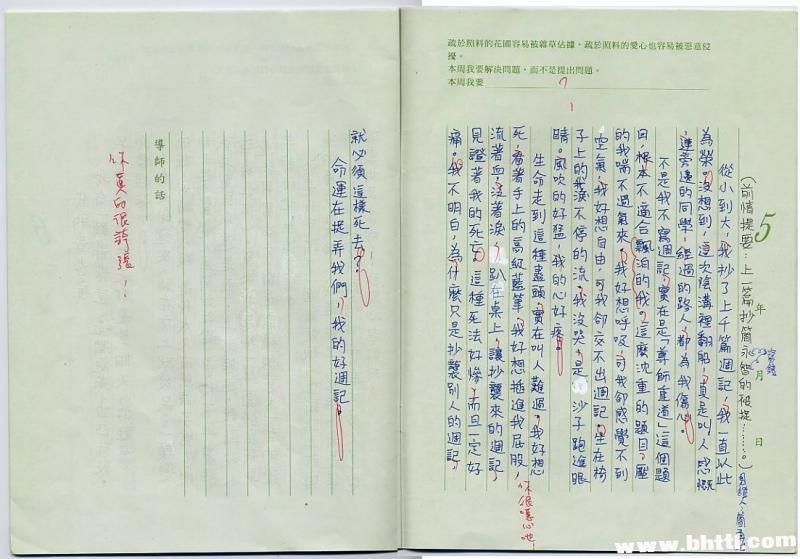 疏於照料的花園容易被雜草佔據，疏於照料的愛心也容易被惡意侵
擾。
本周我要解決問題，而不是提出問題。
本周我要
5 年 月 日
(前情提要：上一篇抄簡永智的被捉……。)
從小到大，我抄了上千篇週記，我一直以此
為榮。沒想到，這次陰溝裡翻船，真是叫人感慨
，連旁邊的同學，經過的路人，都為我傷心。
不是我不寫週記，實在是「尊師重道」這個題
目，根本不適合飄泊的我。這麼沈重的題目，壓
的我喘不過氣來，我好想呼吸，可我卻感覺不到
空氣，我好想自由，可我卻交不出週記。坐在椅
子上的我，淚不停的流，我沒哭，是沙子跑進眼
睛。風吹的好猛，我的心好疼。
生命走到這種盡頭，實在叫人難過。我好想
死，看著手上的高級藍筆，我好想插進我屁股，
你很噁心吔！
流著血，流著淚，趴在桌上，讓抄襲來的週記，
見證著我的死亡。這種死法好慘，而且一定好
痛。我不明白，為什麼只是抄襲別人的週記，
就必須這樣死去？
命運在捉弄我們，我的好週記。
導師的話
你真的很誇張！
www.bhtti.com